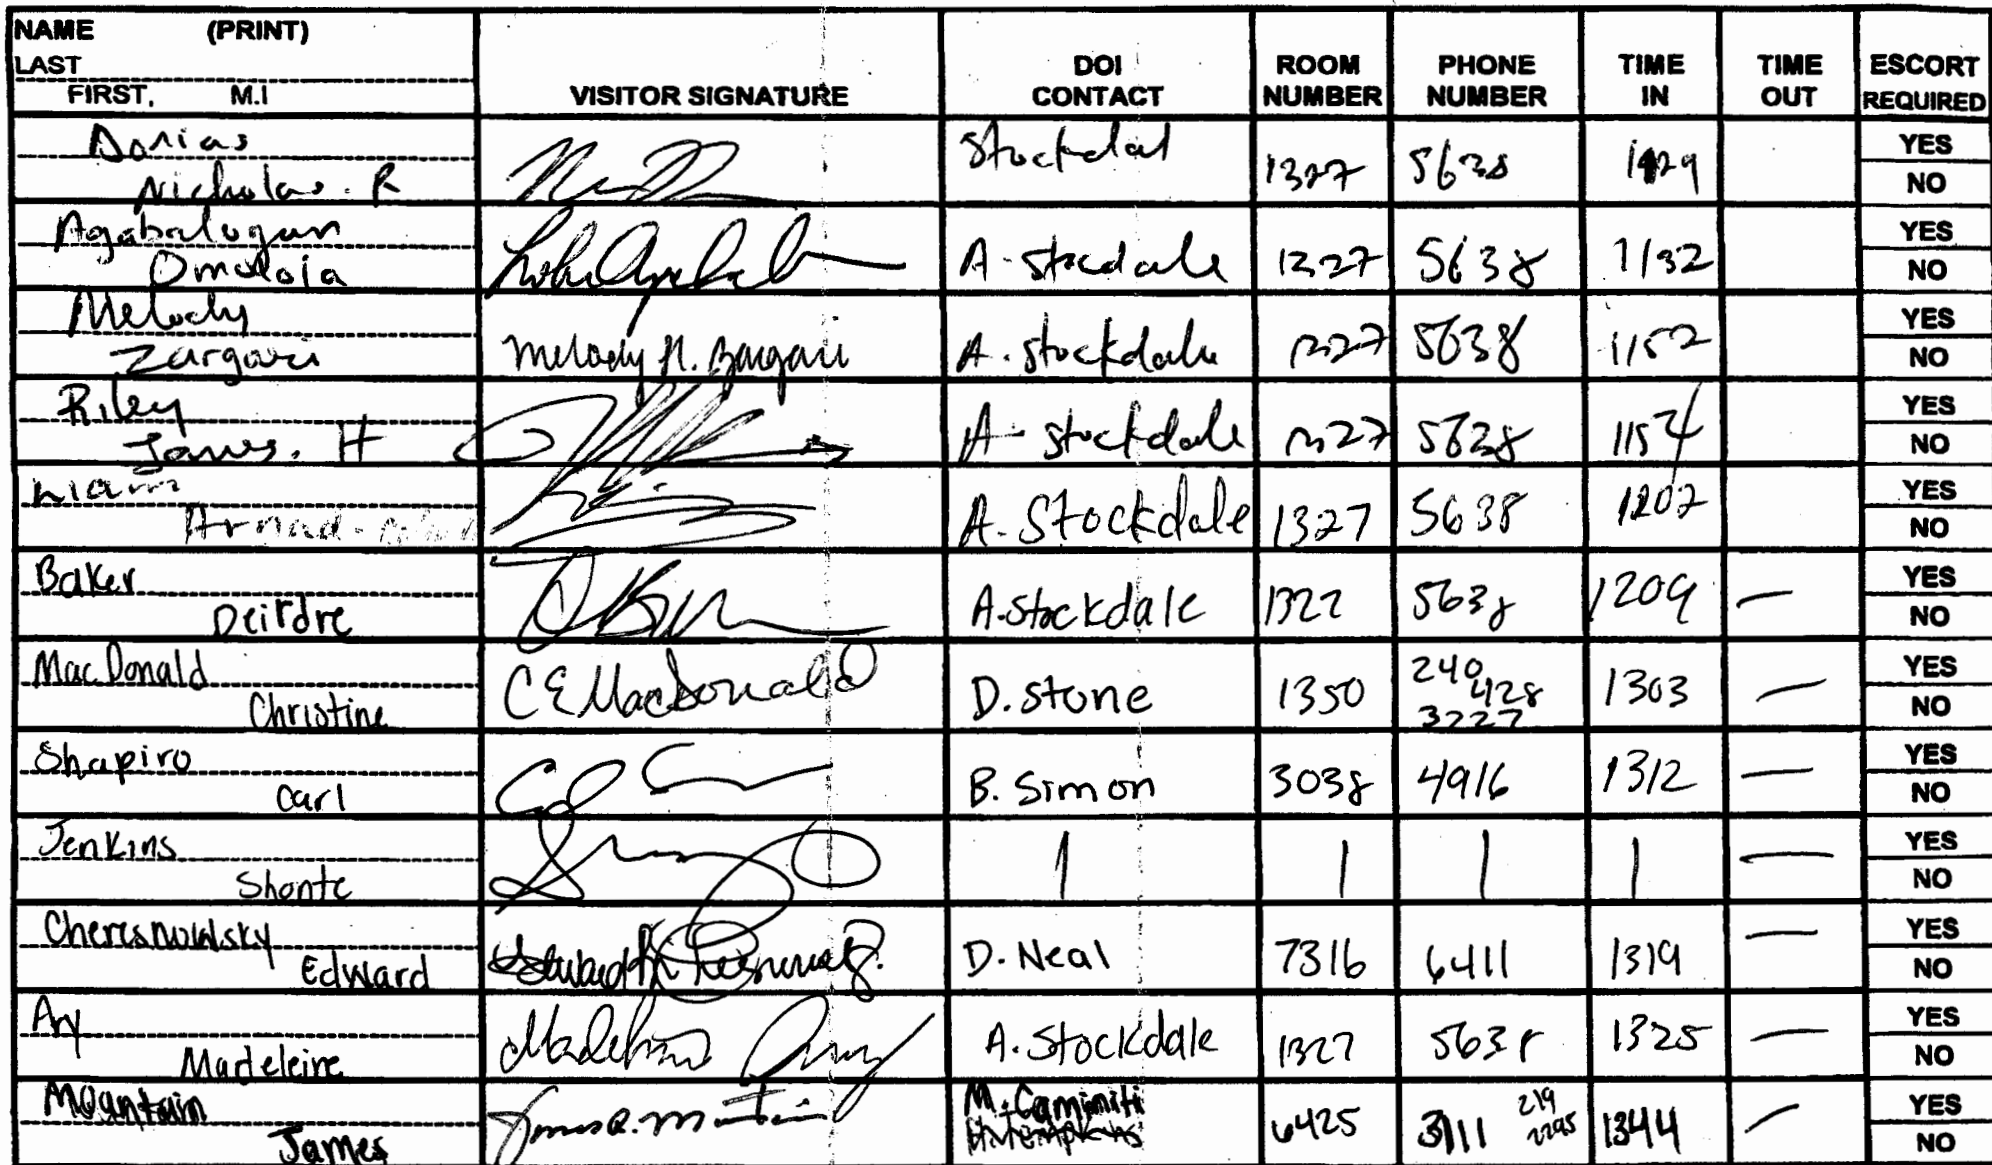 NAME (PRINT)
LAST
FIRST, M.I
VISITOR SIGNATURE
DOI CONTACT
ROOM NUMBER
PHONE NUMBER
TIME IN
TIME OUT
ESCORT REQUIRED
Nicholas. R Stockdal 1327 5638 YES NO
Agabalogun A-stockdale 1327 5638 1132 YES NO
Melody Zargari Melody N. Zargari A. stockdale 1327 5638 1152 YES NO
Riley James. H A- stockdale 1327 5638 1154 YES NO
Liam A. Stockdale 1327 5638 1202 YES NO
Baker Deirdre A. Stockdale 1327 5638 1209 — YES NO
MacDonald Christine C E MacDonald D. Stone 1350 240 428 3227 1303 — YES NO
Shapiro Carl B. Simon 3038 4916 1312 — YES NO
Jenkins Shonte | | | | — YES NO
Edward D. Neal 7316 6411 1319 — YES NO
Ary Madeleine A. Stockdale 1327 5638 1325 — YES NO
Mountain James M. Caminiti 6425 3111 219 1344 — YES NO